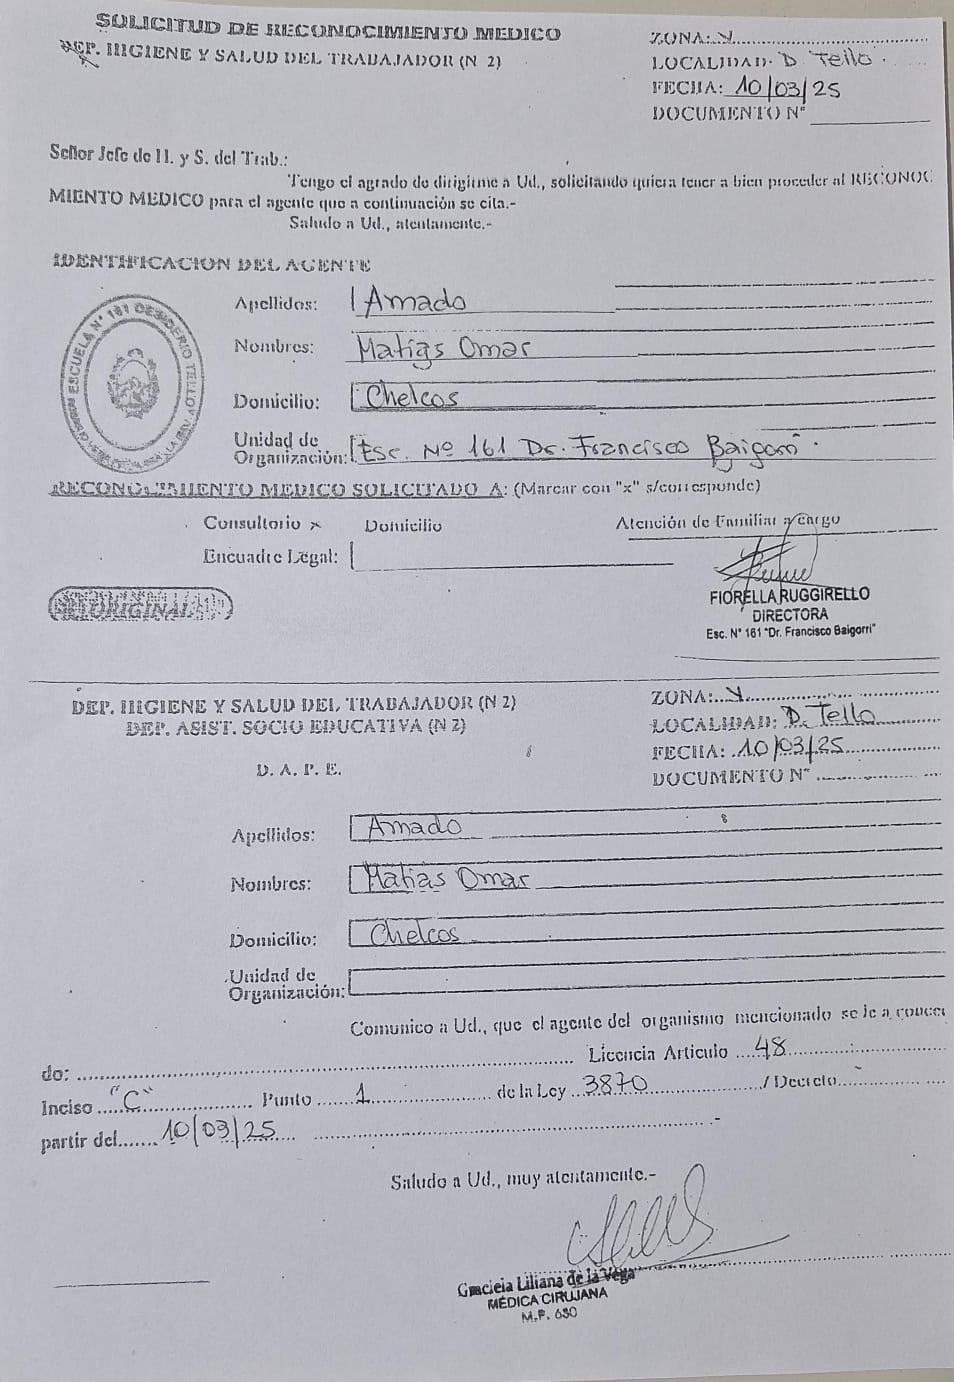 SOLICITUD DE RECONOCIMIENTO MEDICO
DEP. HIGIENE Y SALUD DEL TRABAJADOR (N 2)
ZONA: V
LOCALIDAD: D Tello
FECHA: 10/03/25
DOCUMENTO N°
Señor Jefe de H. y S. del Trab.:
Tengo el agrado de dirigirme a Ud., solicitando quiera tener a bien proceder al RECONOC
MIENTO MEDICO para el agente que a continuación se cita.-
Saludo a Ud., atentamente.-
IDENTIFICACION DEL AGENTE
ESCUELA N° 161 DESIDERIO TELLO
Apellidos: Amado
Nombres: Matías Omar
Domicilio: Chelcos
Unidad de
Organización: Esc. Nº 161 Dr. Francisco Baigorri
RECONOCIMIENTO MEDICO SOLICITADO A: (Marcar con "x" s/corresponde)
Consultorio x Domicilio Atención de Familiar a cargo
Encuadre Legal:
FIORELLA RUGGIRELLO
DIRECTORA
Esc. N° 161 "Dr. Francisco Baigorri"
ORIGINAL
DEP. HIGIENE Y SALUD DEL TRABAJADOR (N 2)
DEP. ASIST. SOCIO EDUCATIVA (N 2)
D. A. P. E.
ZONA: V
LOCALIDAD: D. Tello
FECHA: 10/03/25
DOCUMENTO N°
Apellidos: Amado
Nombres: Matías Omar
Domicilio: Chelcos
Unidad de
Organización:
Comunico a Ud., que el agente del organismo mencionado se le a conce
do: Licencia Articulo 48
Inciso "C" Punto 1 de la Ley 3870 / Decreto
partir del 10/03/25 .-
Saludo a Ud., muy atentamente.-
Graciela Liliana de la Vega
MÉDICA CIRUJANA
M.P. 630